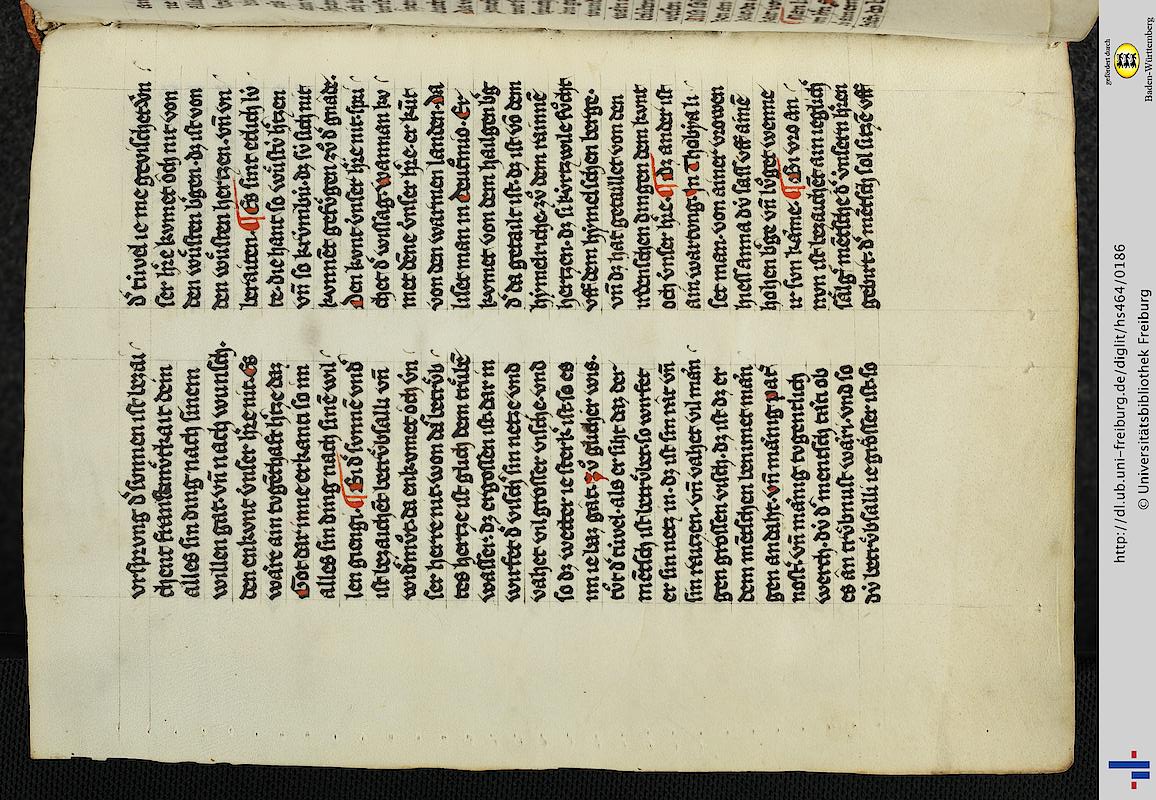 vrsprung d' sunnen ist bezai
chent senftmvͤtkait dem
allev sin ding nach sinem
willen gat· vñ nach wunsch·
den enkvnt vnser h're nit· Es
wäre an tvgenthaft h'tze daz
Got dar inne erkanti so im
allev sin ding nach sinē wil
len giengi· ¶ Bi d' svnnē vnd
ist bezaichet betrvͤbsalli vñ
widmvͤt· da enkvmet och vn
ser herre nit· won da betrvͤb
tes hertze ist glich dem trvͤbē
wasser· dz ergossen ist· dar in
wirfet d' visch' sin netze vnd
vahet vil grosser vische· vnd
so dz wetter ie sterk' ist· so es
im ie baz gat· Zv glicher wis·
tvͦt d' tivel· als er siht daz der
mētsch ist betrvͤbet· so wirfet
er sin netz in· dz ist sin nit vñ
sin raitzen· vñ vahet vil män
gen grossen visch· dz ist· dz er
dem mētschen benimet män
gen andaht· vñ mänig pat'
nost'· vñ mänig tvgentlich
werch· div d' mentsch täti ob
es an trvͤbnust wäri· vnd so
div betrvͤbsalli ie grösser ist· so
d' tivel ie me gevischet· Vn
ser h're kvmet och nit von
den wuͤsten bgen· dz ist von
den wuͤsten hertzen· vñ vn
beraiten· ¶ Es sint etlich lv
te· die hant so wuͤstiv h'tzen
vñ so krvmbi· dz si sich nit
kvnnēt gefvͤgen zv d' gnade·
Den kvnt vnser h're nit· spri
chet d' wissag· Wannan kv
met dēne vnser h're· er kvt
von den warmen landen· Da
liset man in Deutrino· Er
kvmet von dem hailgen bg
d' da getailt ist· dz ist vō dem
hymelriche· zv dem rainnē
hertzen· dz si kvrtzwile svͦcht
vff dem hymelschen berge·
vñ dz hat getaillet von den
irdenschen dingen· den kvnt
och vnser h're· ¶ Dz ander ist
ain wartvng· Jn Thobya li
set man· von ainer vrowen
hiess anna· div sass vff ainē
hohen bge vñ lvͦget wenne
ir svn käme· ¶ Bi vro an
nvn ist bezaichet ain ieglich
sälig mētsche d' vnsern h're͂n
geburt· d' mētsch sol sitzē vff
gefördert durch
Baden-Württemberg
http://dl.ub.uni-freiburg.de/diglit/hs464/0186
© Universitätsbibliothek Freiburg